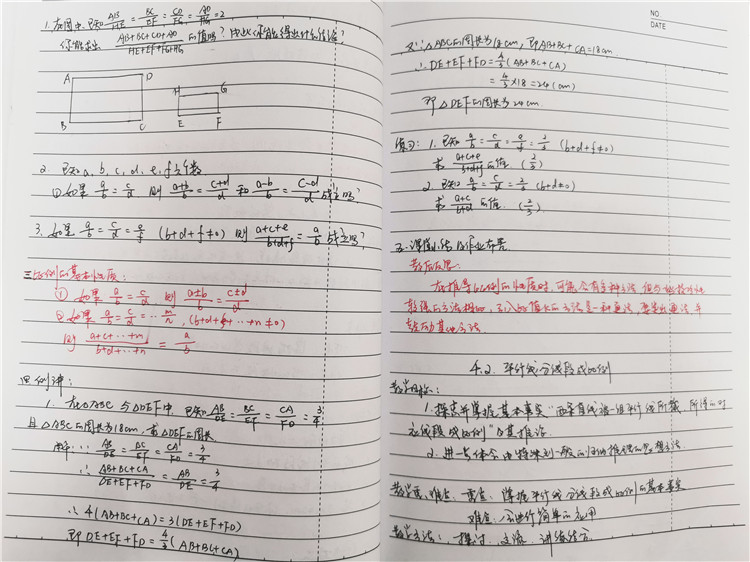 1. 右图中,已知 AB/HE = BC/EF = CD/FG = AD/HG = 2
你能求出 (AB+BC+CD+AD)/(HE+EF+FG+HG) 的值吗?由此你能得出什么结论?
A D
H G
B C
E F
2. 已知 a, b, c, d, e, f 六个数
① 如果 a/b = c/d 则 (a+b)/b = (c+d)/d 和 (a-b)/b = (c-d)/d 成立吗?
3. 如果 a/b = c/d = e/f (b+d+f≠0) 则 (a+c+e)/(b+d+f) = a/b 成立吗?
三 比例的基本性质:
① 如果 a/b = c/d 则 (a±b)/b = (c±d)/d
② 如果 a/b = c/d = … m/n, (b+d+…+n≠0)
则 (a+c+…+m)/(b+d+…+n) = a/b
四 例讲:
1. 在△ABC 与△DEF中 已知 AB/DE = BC/EF = CA/FD = 3/4
且△ABC的周长为18cm,求△DEF的周长
解:∵ AB/DE = BC/EF = CA/FD = 3/4
∴ (AB+BC+CA)/(DE+EF+FD) = AB/DE = 3/4
∴ 4(AB+BC+CA)=3(DE+EF+FD)
即 DE+EF+FD = 4/3 (AB+BC+CA)
NO.
DATE
又∵△ABC的周长为18cm,即AB+BC+CA=18cm
∴ DE+EF+FD = 4/3 (AB+BC+CA)
= 4/3 ×18 = 24(cm)
即△DEF的周长为24cm
练习:1. 已知 a/b = c/d = e/f = 2/3 (b+d+f≠0)
求 (a+c+e)/(b+d+f) 的值. (2/3)
2. 已知 a/b = c/d = 2/3 (b+d≠0)
求 (a+c)/(b+d) 的值. (2/3).
五. 课堂小结及作业布置
教后反思:
在推导比例的性质时,可能会有多种方法
方法是一种通法,要突出通法,并
其他方法
4.2. 平行线分线段成比例
教学目标:
1. 探索并掌握基本事实“两条直线被一组平行线所截,所得的对
应线段成比例”及其推论.
2. 进一步体会由特殊到一般的归纳推理的思想方法.
教学重、难点:重点:掌握平行线分线段成比例的基本事实
难点:会进行简单的应用
教学方法:探讨 交流 讲练结合